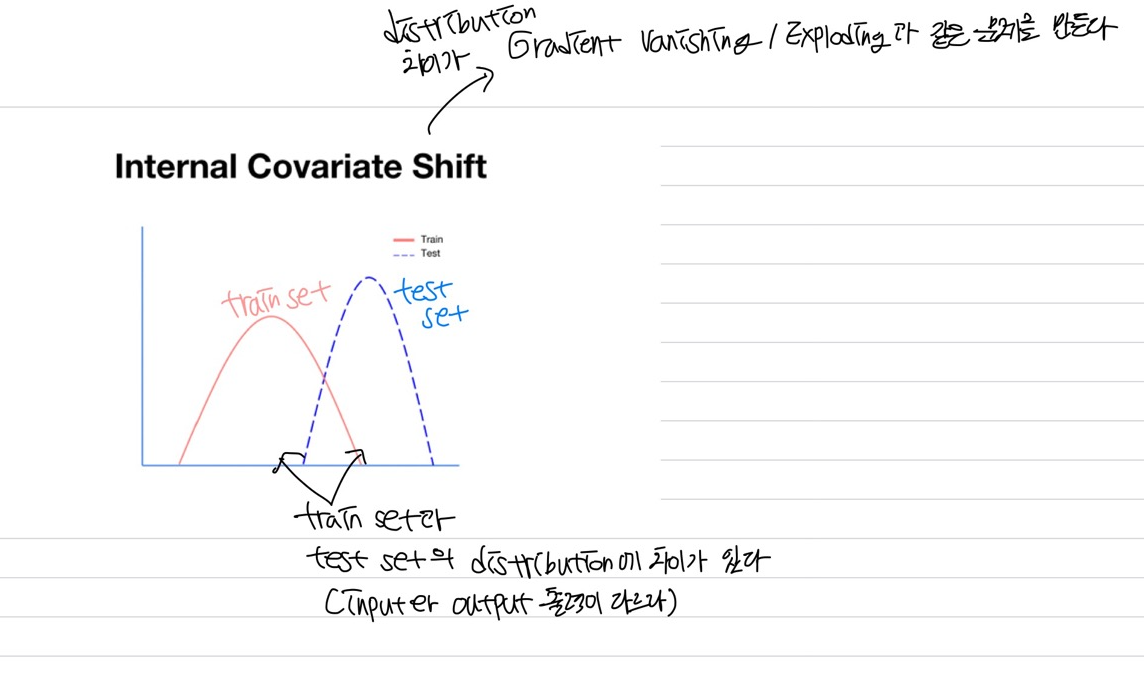 distribution
차이가
Gradient Vanishing / Exploding과 같은 문제를 만든다
Internal Covariate Shift
Train
Test
train set
test
set
train set과
test set의 distribution에 차이가 있다
(input과 output 출력이 다르다)